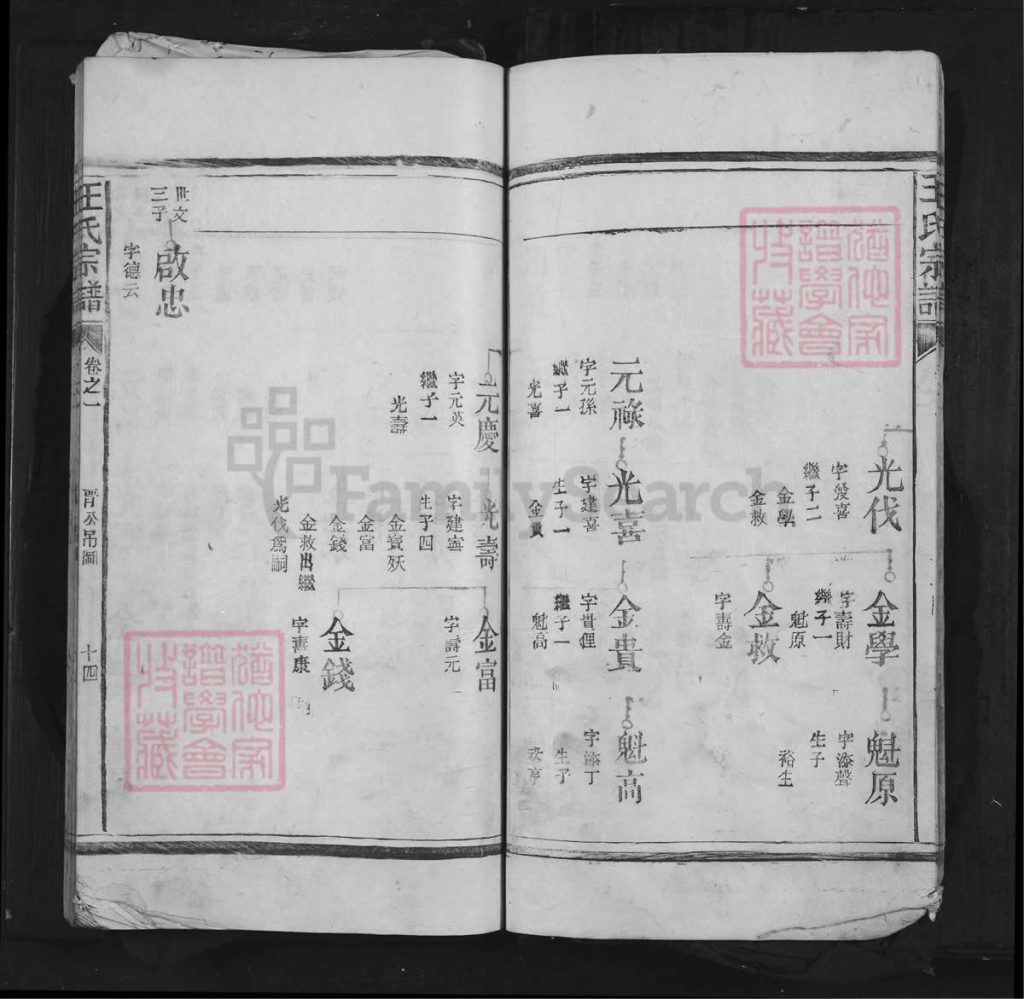 王氏宗譜
光伐
字爰喜
繼子二
金學
金救
金學
字壽財
繼子一
魁原
魁原
字添聲
生子
裕生
金救
字壽金
元祿
字元孫
繼子一
光喜
光喜
字建喜
生子一
金貴
金貴
字貴俚
繼子一
魁高
魁高
字添丁
生子
元慶
字元英
繼子一
光壽
光壽
字建寧
生子四
金寶妖
金富
金錢
金救出繼
光伐為嗣
金富
字壽元
金錢
字壽康
世文
三子
啟忠
字德云
王氏宗譜
卷之一
晋公吊圖
十四
猶他家
譜學會
收藏
猶他家
譜學會
收藏
FamilySearch